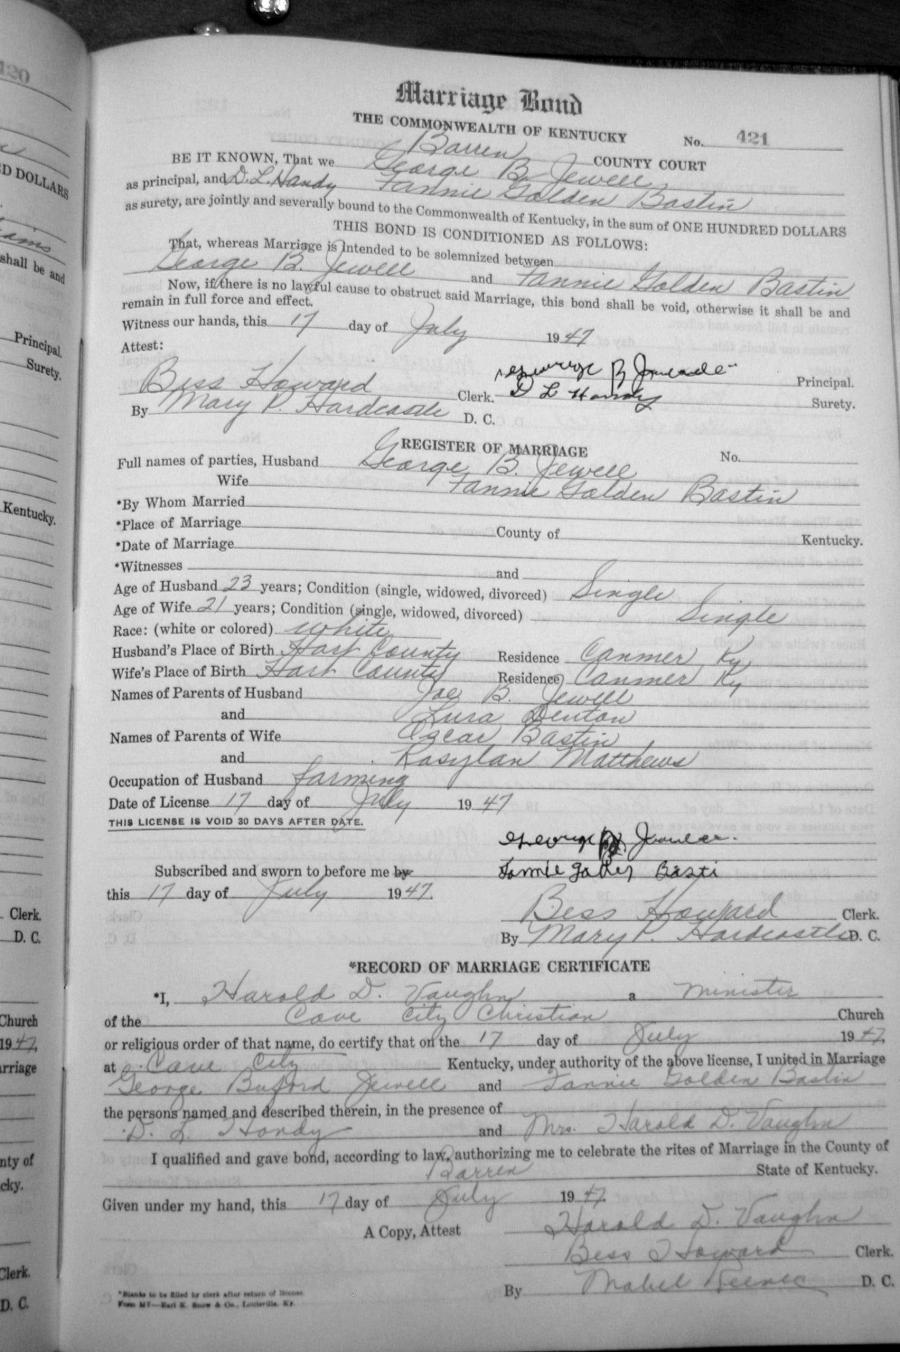 120
D DOLLARS
ams
shall be and
Principal.
Surety.
Kentucky.
Clerk.
D. C.
Church
1947,
arriage
nty of
cky.
Clerk.
D. C.
Marriage Bond
THE COMMONWEALTH OF KENTUCKY No. 421
Barren COUNTY COURT
BE IT KNOWN, That we George B. Jewell
as principal, and D. L. Handy Fannie Golden Bastin
as surety, are jointly and severally bound to the Commonwealth of Kentucky, in the sum of ONE HUNDRED DOLLARS
THIS BOND IS CONDITIONED AS FOLLOWS:
That, whereas Marriage is intended to be solemnized between
George B. Jewell and Fannie Golden Bastin
Now, if there is no lawful cause to obstruct said Marriage, this bond shall be void, otherwise it shall be and
remain in full force and effect.
Witness our hands, this 17 day of July 1947
Attest:
George B Principal.
Bess Howard Clerk. D L Handy Surety.
By Mary P. Hardcastle D. C.
REGISTER OF MARRIAGE No.
Full names of parties, Husband George B. Jewell
Wife Fannie Golden Bastin
*By Whom Married
*Place of Marriage County of Kentucky.
*Date of Marriage
*Witnesses and
Age of Husband 23 years; Condition (single, widowed, divorced) Single
Age of Wife 21 years; Condition (single, widowed, divorced) Single
Race: (white or colored) white
Husband's Place of Birth Hart County Residence Canmer Ky
Wife's Place of Birth Hart County Residence Canmer Ky
Names of Parents of Husband Joe B. Jewell
and Lura Denton
Names of Parents of Wife Ozcar Bastin
and Rosylan Matthews
Occupation of Husband farming
Date of License 17 day of July 1947
THIS LICENSE IS VOID 30 DAYS AFTER DATE.
George B
Subscribed and sworn to before me by Fannie Basti
this 17 day of July 1947.
Bess Howard Clerk.
By Mary P. Hardcastle D. C.
*RECORD OF MARRIAGE CERTIFICATE
*I, Harold D. Vaughn a minister
of the Cave City Christian Church
or religious order of that name, do certify that on the 17 day of July 1947,
at Cave City Kentucky, under authority of the above license, I united in Marriage
George Buford Jewell and Fannie Golden Bastin
the persons named and described therein, in the presence of
D. L. Handy and Mrs. Harold D. Vaughn
I qualified and gave bond, according to law, authorizing me to celebrate the rites of Marriage in the County of
Barren State of Kentucky.
Given under my hand, this 17 day of July 1947.
A Copy, Attest Harold D. Vaughn
Bess Howard Clerk.
By Mabel D. C.
*Blanks to be filled by clerk after return of license.
Form M7—Earl K. Snow & Co., Louisville, Ky.